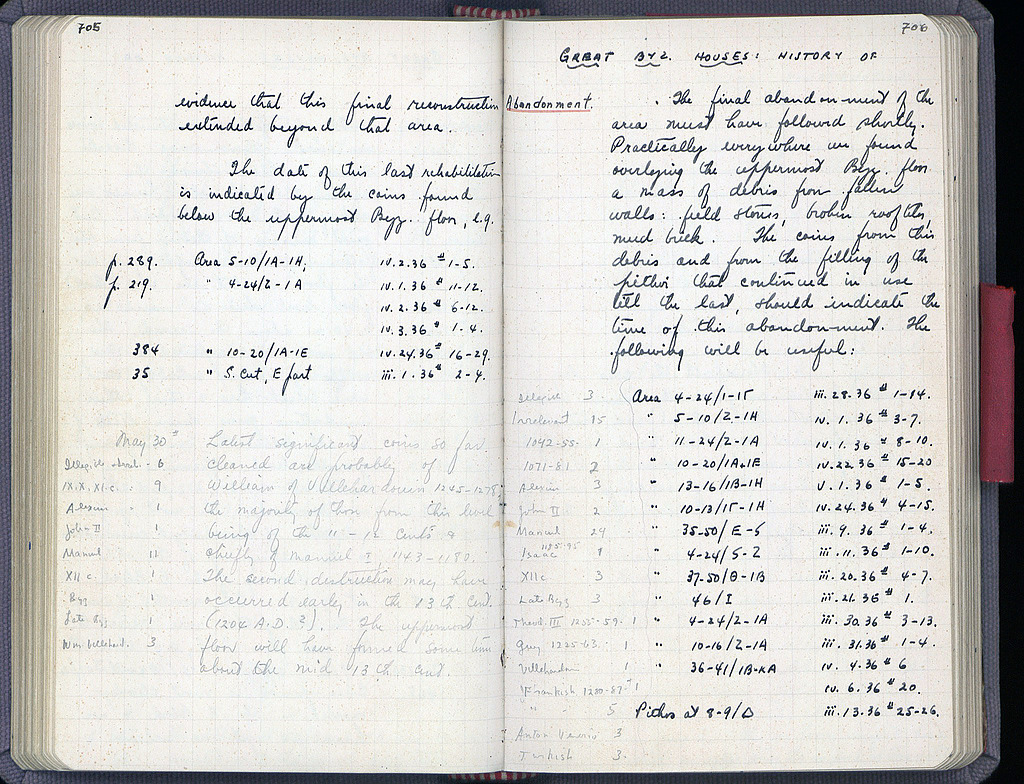 705
evidence that this final reconstruction
extended beyond that area.
The date of this last rehabilitation
is indicated by the coins found
below the uppermost Byz. floor, e.g.
p. 289. Area 5-10/1A-1H, iv.2.36 # 1-5.
p. 219. " 4-24/Z-1A iv.1.36 # 11-12.
iv.2.36 # 6-12.
iv.3.36 # 1-4.
384 " 10-20/1A-1E iv.24.36 # 16-29.
35 " S. Cut, E part iii.1.36 # 2-4.
May 30th Latest significant coins so far
cleaned are probably of
IX, X, XI c. 9 William of Villehardouin 1245-1278,
Alexius " 1 the majority of those from this level
John II 1 being of the 11-12 cents &
Manuel 11 chiefly of Manuel I 1143-1180.
XII c. 1 The second destruction may have
Byz 1 occurred early in the 13th cent.
Late Byz 1 (1204 A.D.?). The uppermost
Wm. Villehard. 3 floor will have formed some time
about the mid 13th cent.
706
GREAT BYZ. HOUSES: HISTORY OF
Abandonment. The final abandonment of the
area must have followed shortly.
Practically everywhere we found
overlying the uppermost Byz. floor
a mass of debris from fallen
walls: field stones, broken rooftiles,
mud brick. The coins from this
debris and from the filling of the
pithoi that continued in use
till the last, should indicate the
time of this abandonment. The
following will be useful:
Illegible 3 Area 4-24/1-1Γ iii.28.36 # 1-14.
Irrelevant 15 " 5-10/Z-1H iv.1.36 # 3-7.
1042-55 1 " 11-24/Z-1A iv.1.36 # 8-10.
1071-81 2 " 10-20/1A-1E iv.22.36 # 15-20
Alexius 3 " 13-16/1B-1H v.1.36 # 1-5.
John II 2 " 10-13/1Γ-1H iv.24.36 # 4-15.
Manuel 24 " 35-50/E-S iii.9.36 # 1-4.
Isaac 1185-95 1 " 4-24/S-Z iii.11.36 # 1-10.
XII c 3 " 37-50/Θ-1B iii.20.36 # 4-7.
Late Byz 3 " 46/I iii.21.36 # 1.
Theod. III 1255-59. 1 " 4-24/Z-1A iii.30.36 # 3-13.
Guy 1225-63. 1 " 10-16/Z-1A iii.31.36 # 1-4.
Villehardouin 1 " 36-41/1B-KA iv.4.36 # 6
Frankish 1280-87 1 iv.6.36 # 20.
" 5 Pithos at 8-9/Δ iii.13.36 # 25-26.
3
Turkish 3.